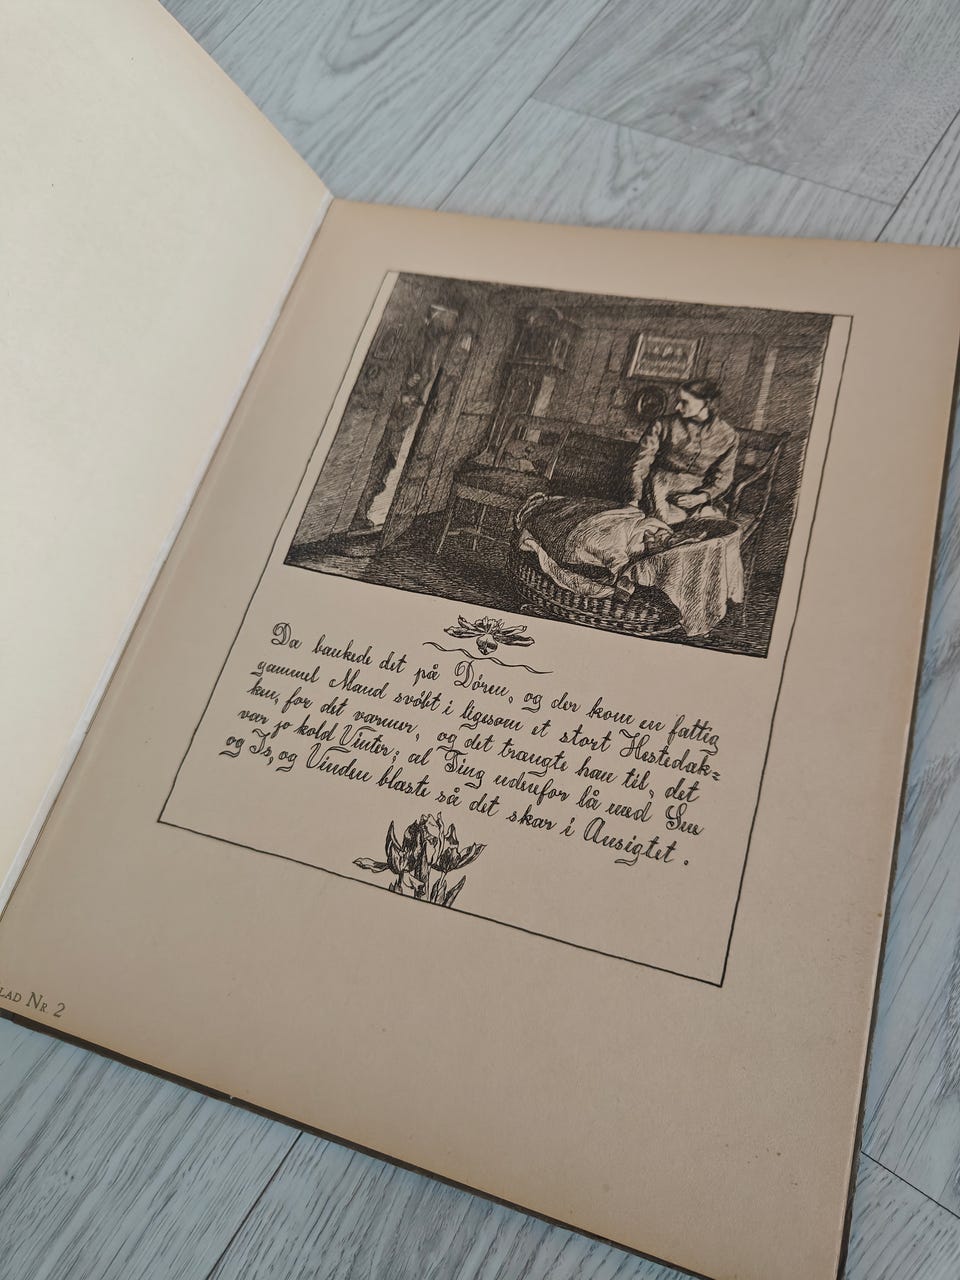 Da bankede det på Dören, og der kom en fattig
gammel Mand svöbt i ligesom et stort Hestedæk=
ken, for det varmer, og det trængte han til, det
var jo kold Vinter; al Ting udenfor lå med Sne
og Is, og Vinden blæste så det skar i Ansigtet.
LAD NR 2